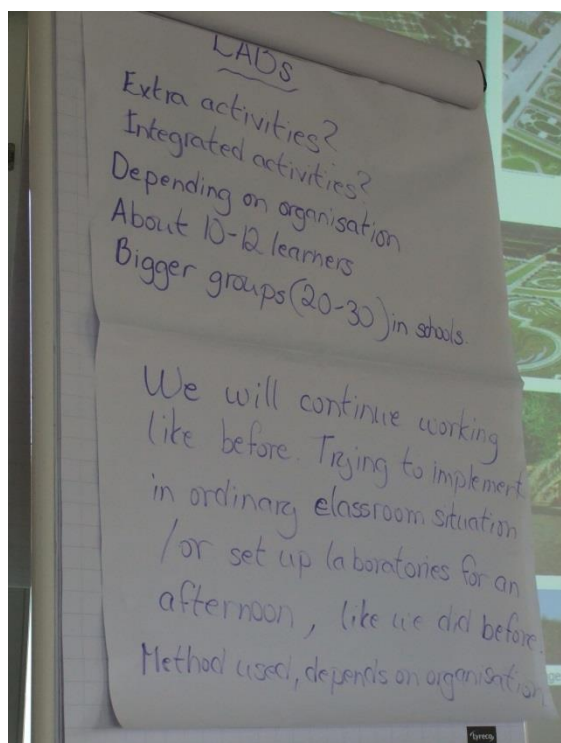 LABS
Extra activities?
Integrated activities?
Depending on organisation
About 10-12 learners
Bigger groups (20-30) in schools.
We will continue working
like before. Trying to implement
in ordinary classroom situation
/or set up laboratories for an
afternoon, like we did before.
Method used, depends on organisation
lyreco